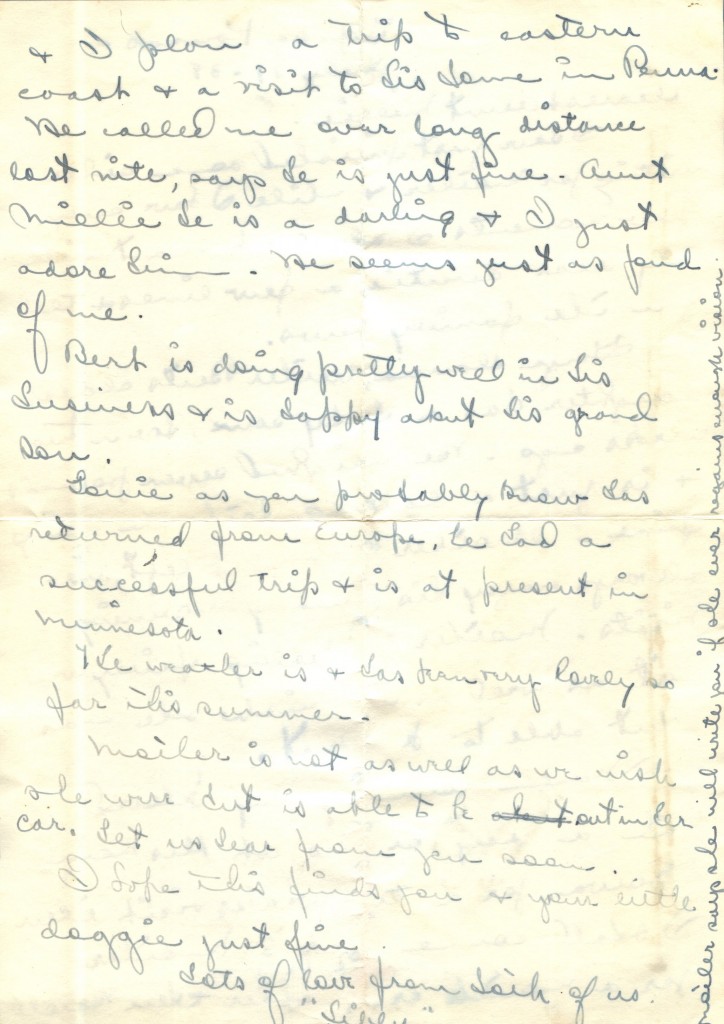 & I plan a trip to eastern
coast & a visit to his home in Penna.
He called me over long distance
last nite, says he is just fine. Aunt
Millie he is a darling & I just
adore him. He seems just as fond
of me.
Bert is doing pretty well in his
business & is happy about his grand
son.
as you probably know has
returned from Europe, he had a
successful trip & is at present in
Minnesota.
The weather is & has been very lovely so
far this summer.
Mother is not as well as we wish
she were but is able to be about out in her
car. Let us hear from you soon.
I hope this finds you & your little
doggie just fine.
Lots of love from both of us.
Mother says she will write you if she ever regains enough vision.